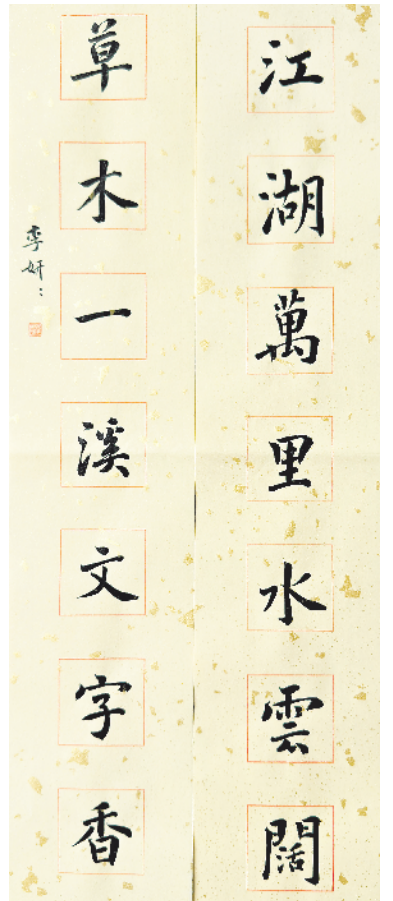 江湖萬里水雲闊
草木一溪文字香
李妍〻